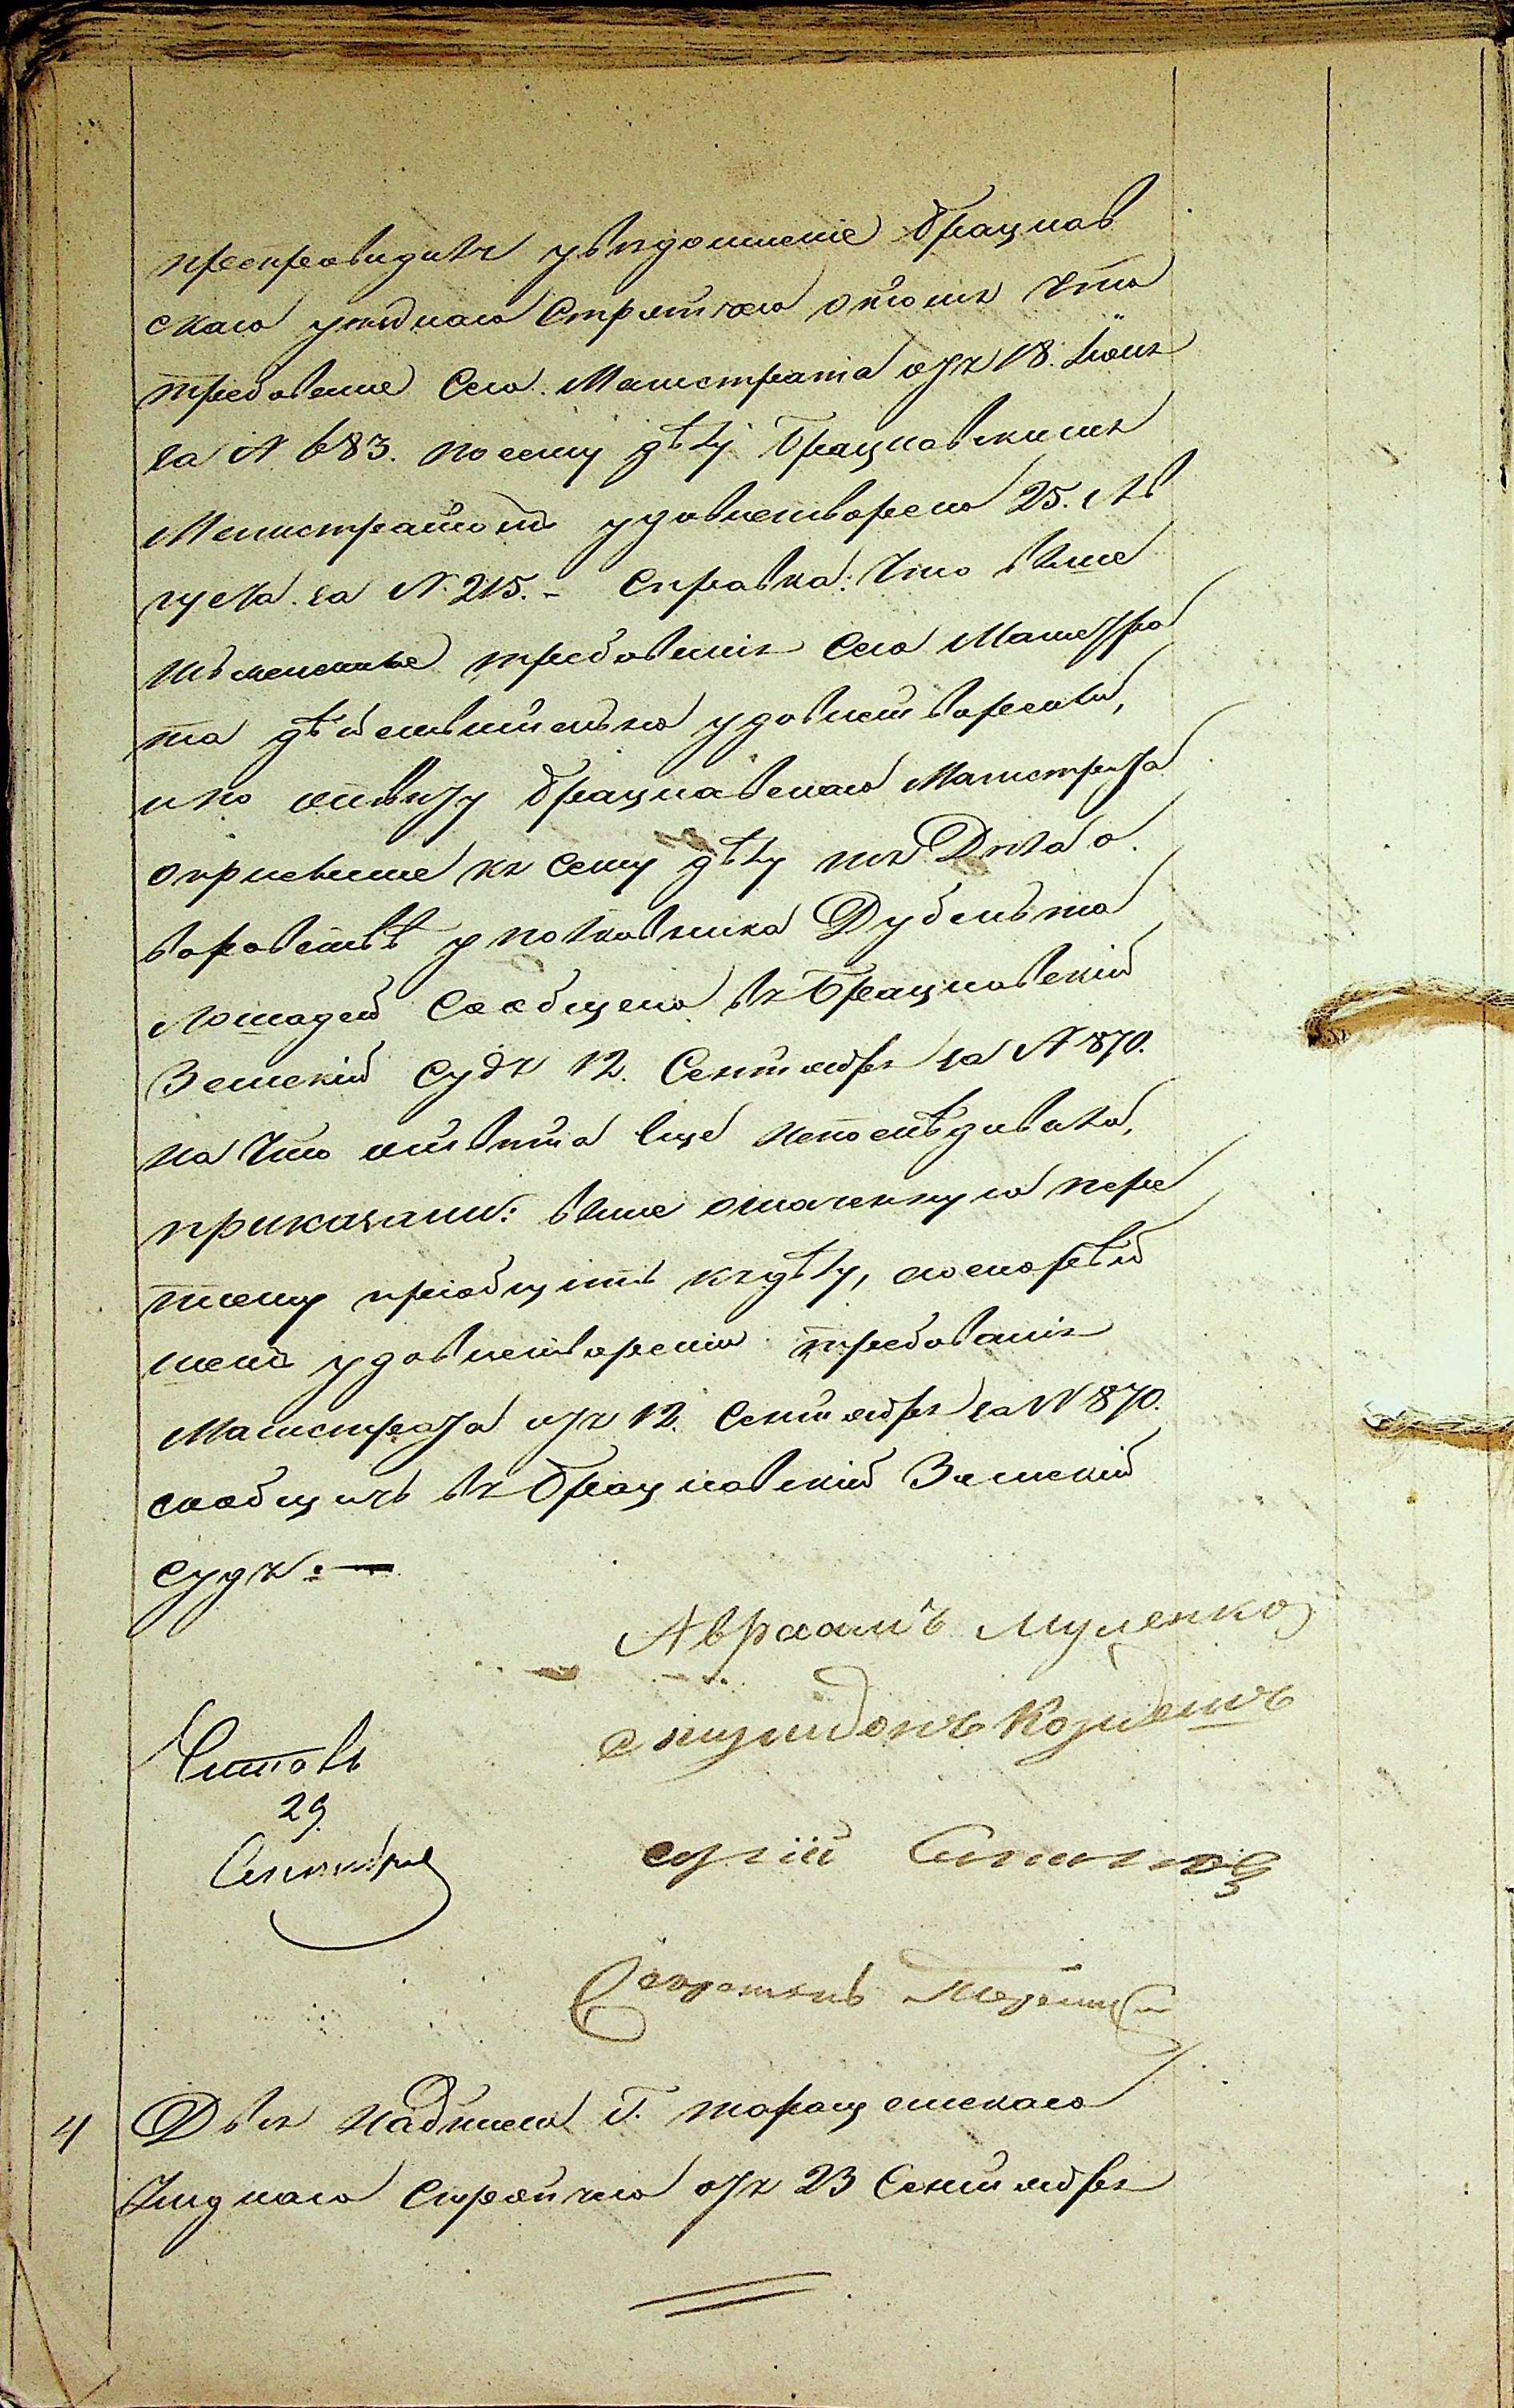 препроводилъ увѣдомленіе Брацлав
скаго уѣзднаго Стряпчаго отомъ что
требованіе Сего Магистрата отъ 18. Іюня
за № 683. по сему дѣлу Брацлавскимъ
Магистратомъ удовлетворено 25. Ав
густа за № 215. - Справка: Что выше
требованія Сего Магистра
та дѣйствительно удовлетворены,
и по отвѣту Брацлавскаго Магистрата
къ сему дѣлу Дѣла о
воровствѣ у полковника Дубельта
Лошадей Сообщено въ Брацлавскій
Земскій Судъ 12. Сентября за № 870.
на что отвѣта еще непослѣдовало,
приказали: выше означенную пере
писку пріобщить къ дѣлу, а о скорѣй
шемъ удовлетвореніи требованія
Магистрата отъ 12. Сентября за № 870.
сообщить въ Брацлавскій Земскій
Судъ. —
Авраамъ
Спиридонъ
Читалъ
29
Сентября
Сергій
Секретарь
4 Двѣ надписи Г. Таращанскаго
Уѣзднаго Стряпчаго отъ 23 Сентября